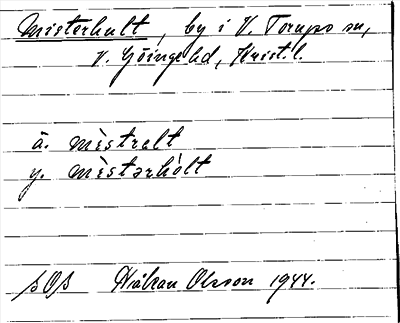 Misterhult, by i V. Torups sn,
V. Göinge hd, Krist. l.
ä. mìstrelt
y. mìstərhòlt
SOS Håkan Olsson 1944.